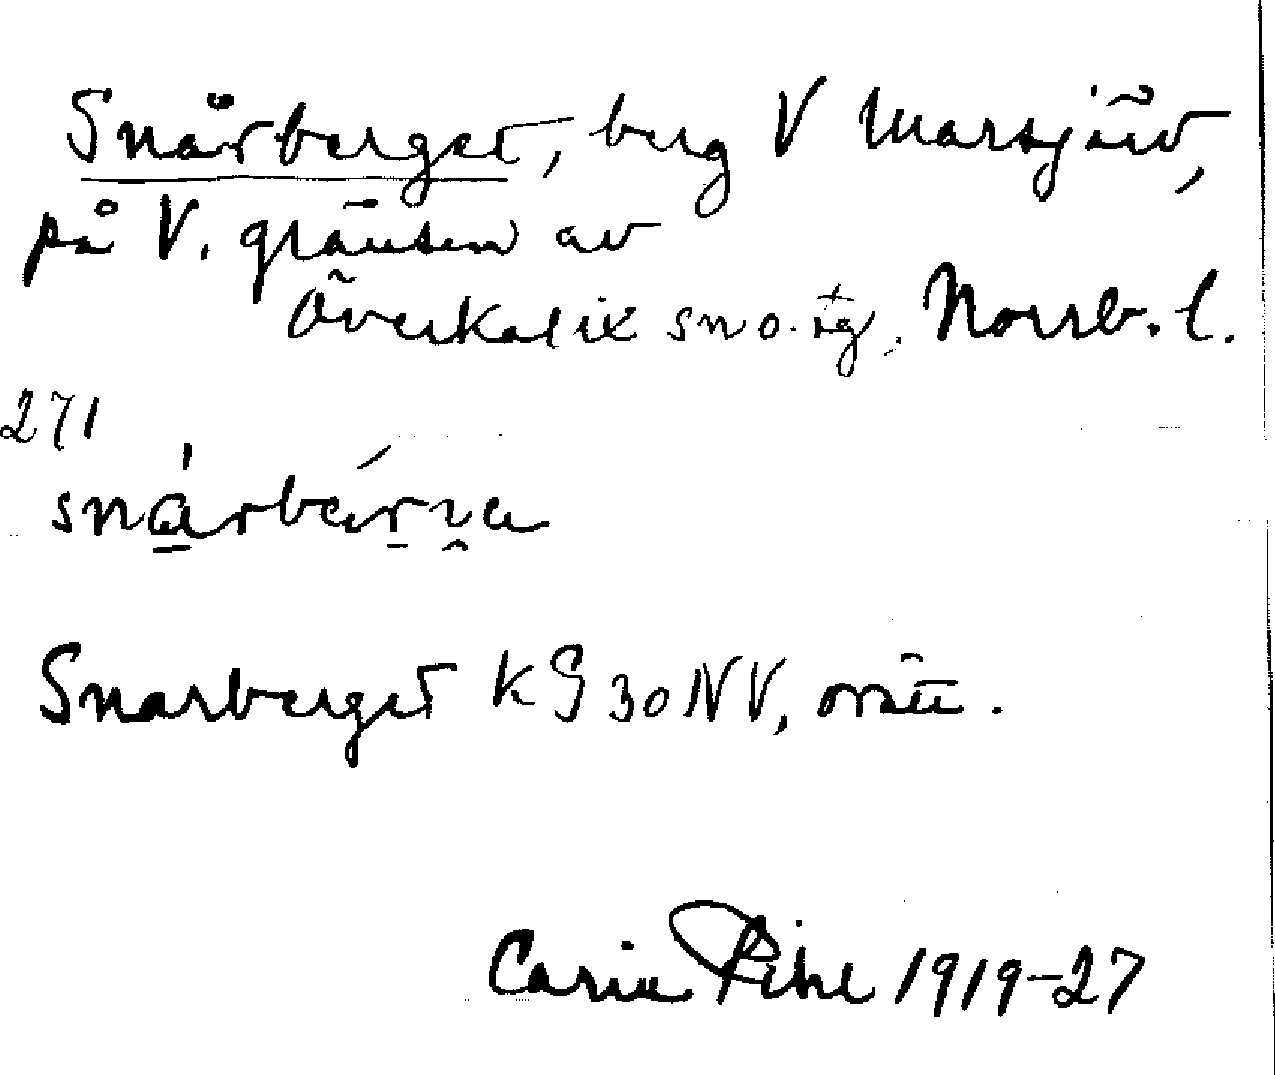 Snårberget, berg V Marsjärv,
på V. gränsen av
Överkalix sn o. tg. Norrb. l.
271
snárbárna
Snarberget KG 30 NV, orätt.
Carin Pihl 1919-27